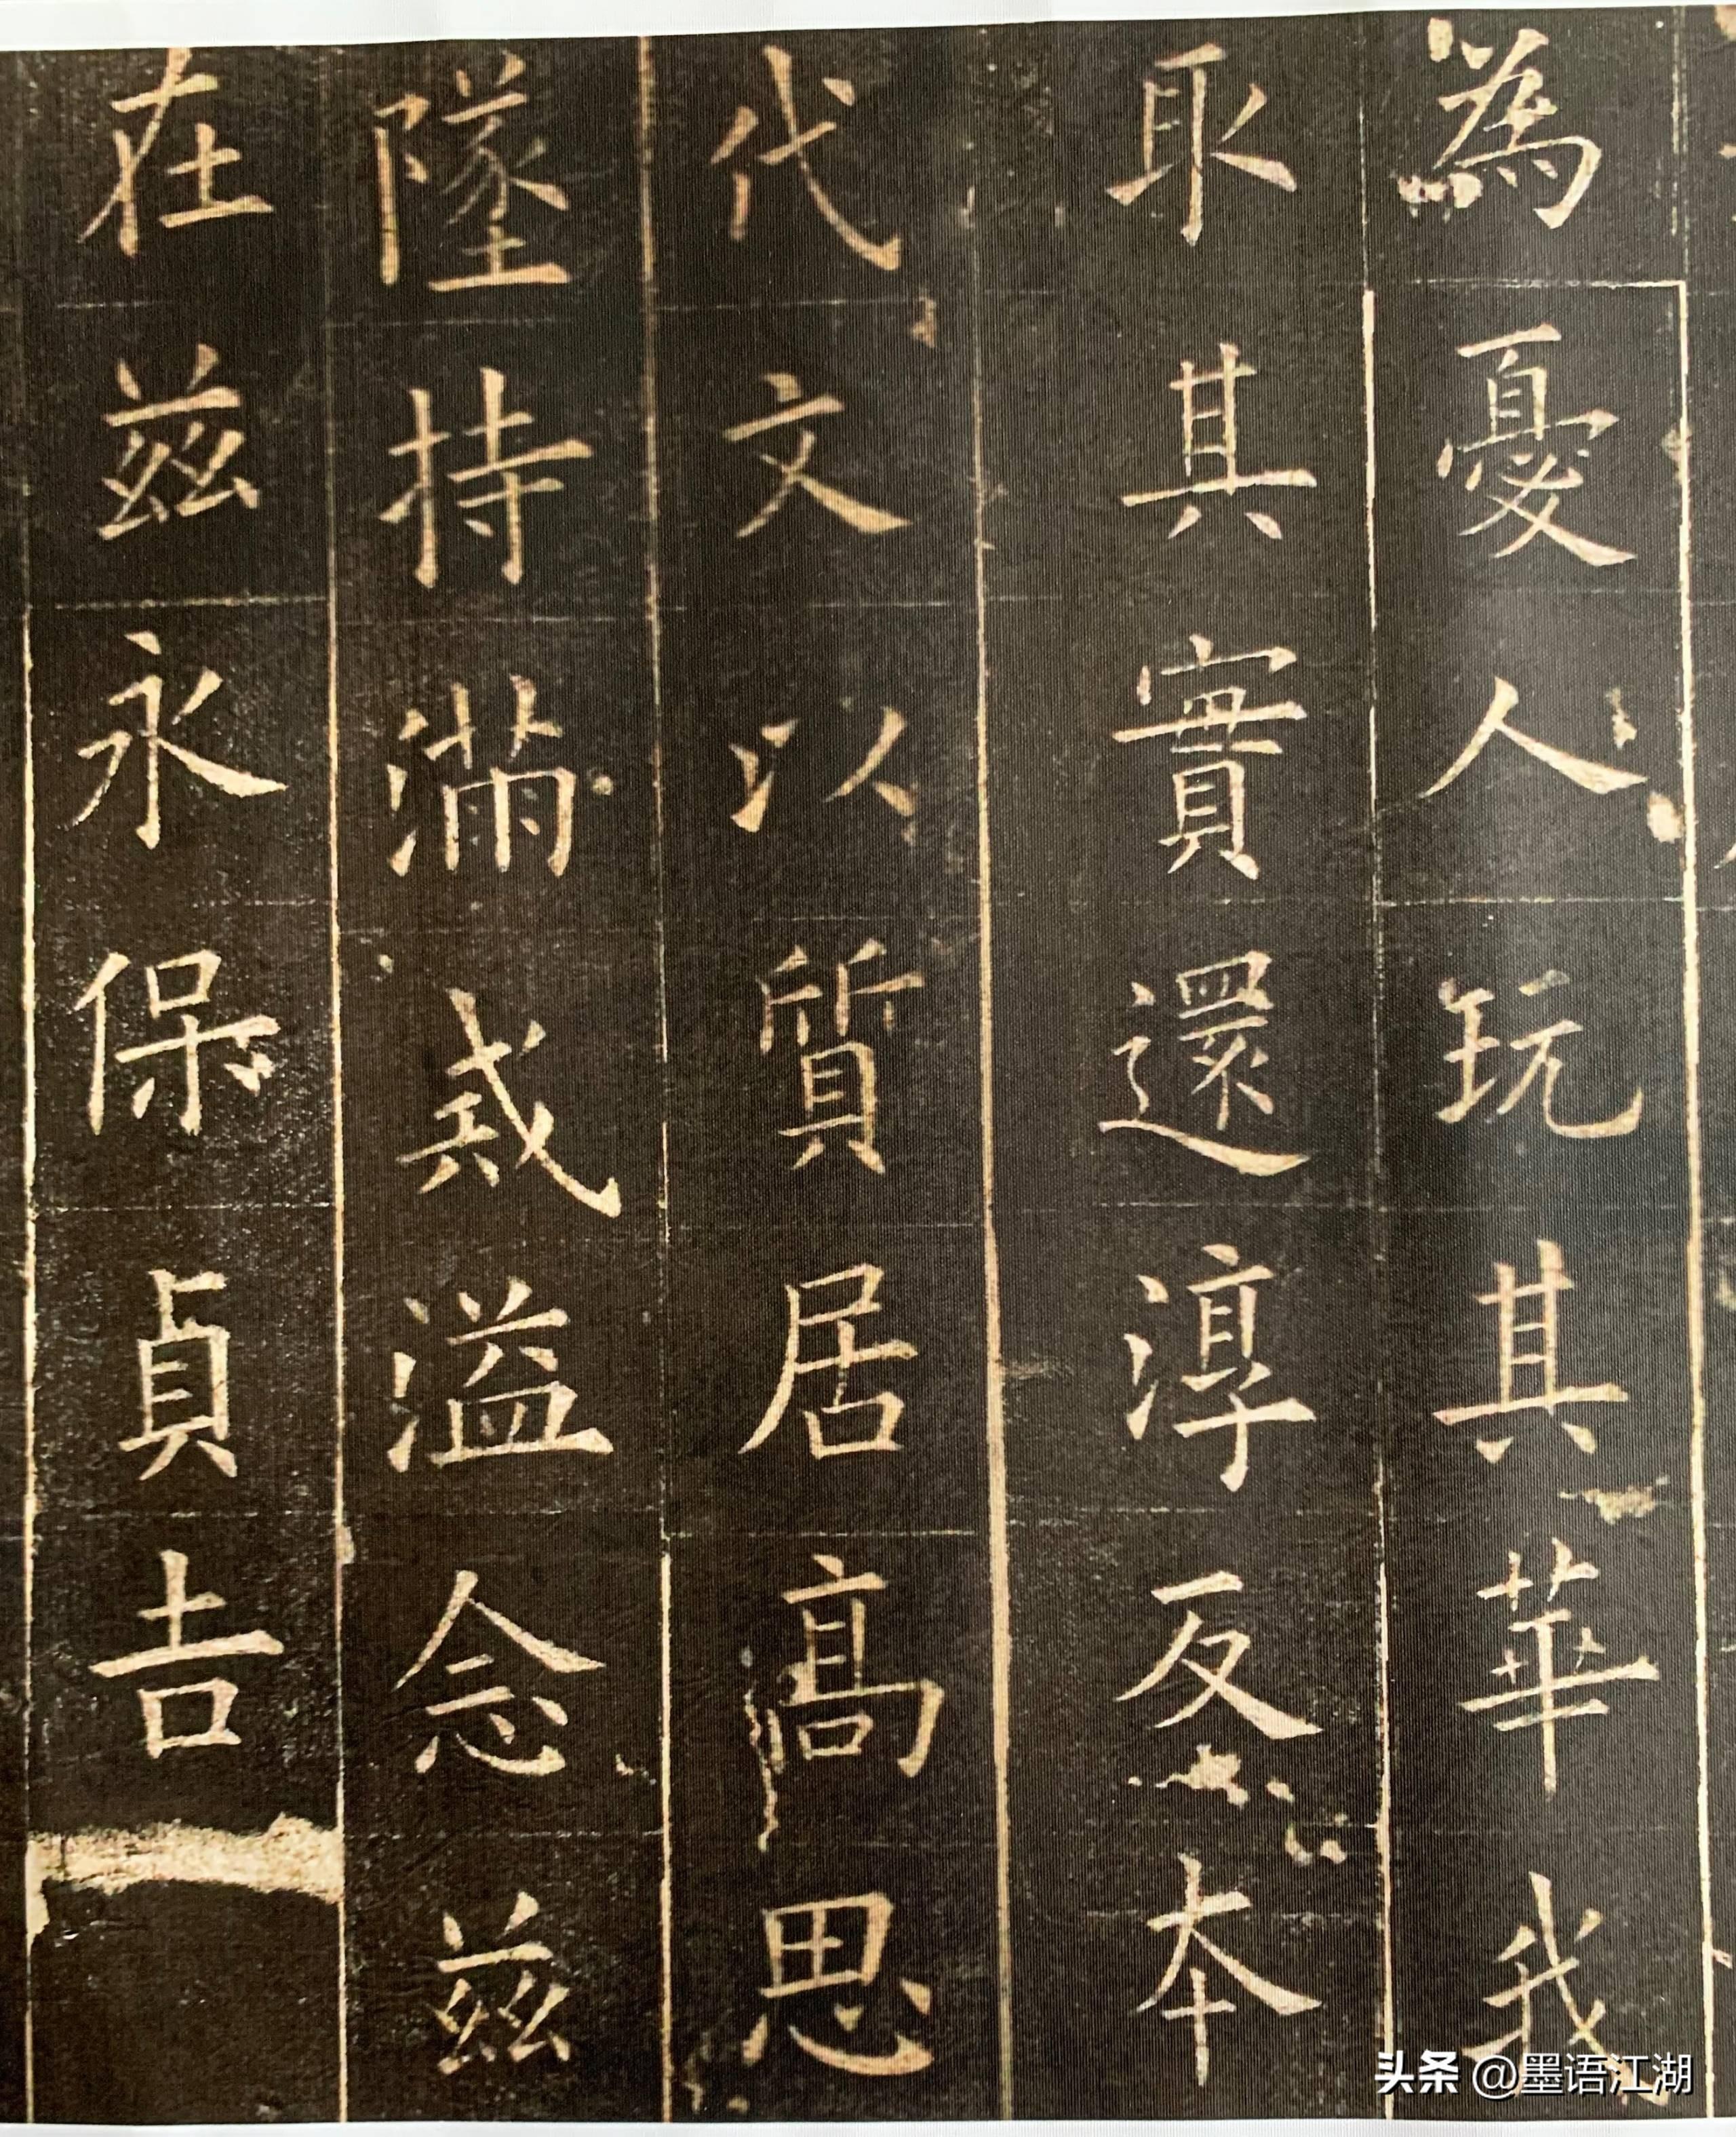 為憂人玩其華我
取其實還淳反本
代文以質居高思
墜持滿戒溢念茲
在茲永保貞吉
头条 @墨语江湖